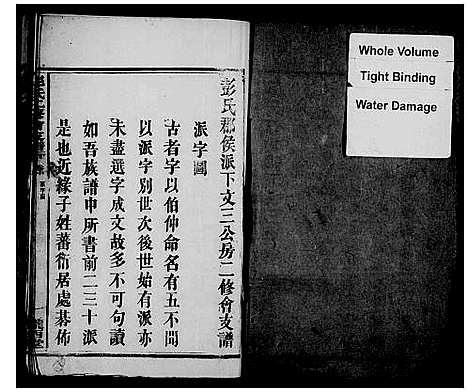 彭氏郡侯派下文三公房二修會支譜
派字圖
古者字以伯仲命名有五不聞
以派字別世次後世始有派亦
未盡選字成文故多不可句讀
如吾族譜申所書前二三十派
是也近緣子姓蕃衍居處棊佈
Whole Volume
Tight Binding
Water Damage